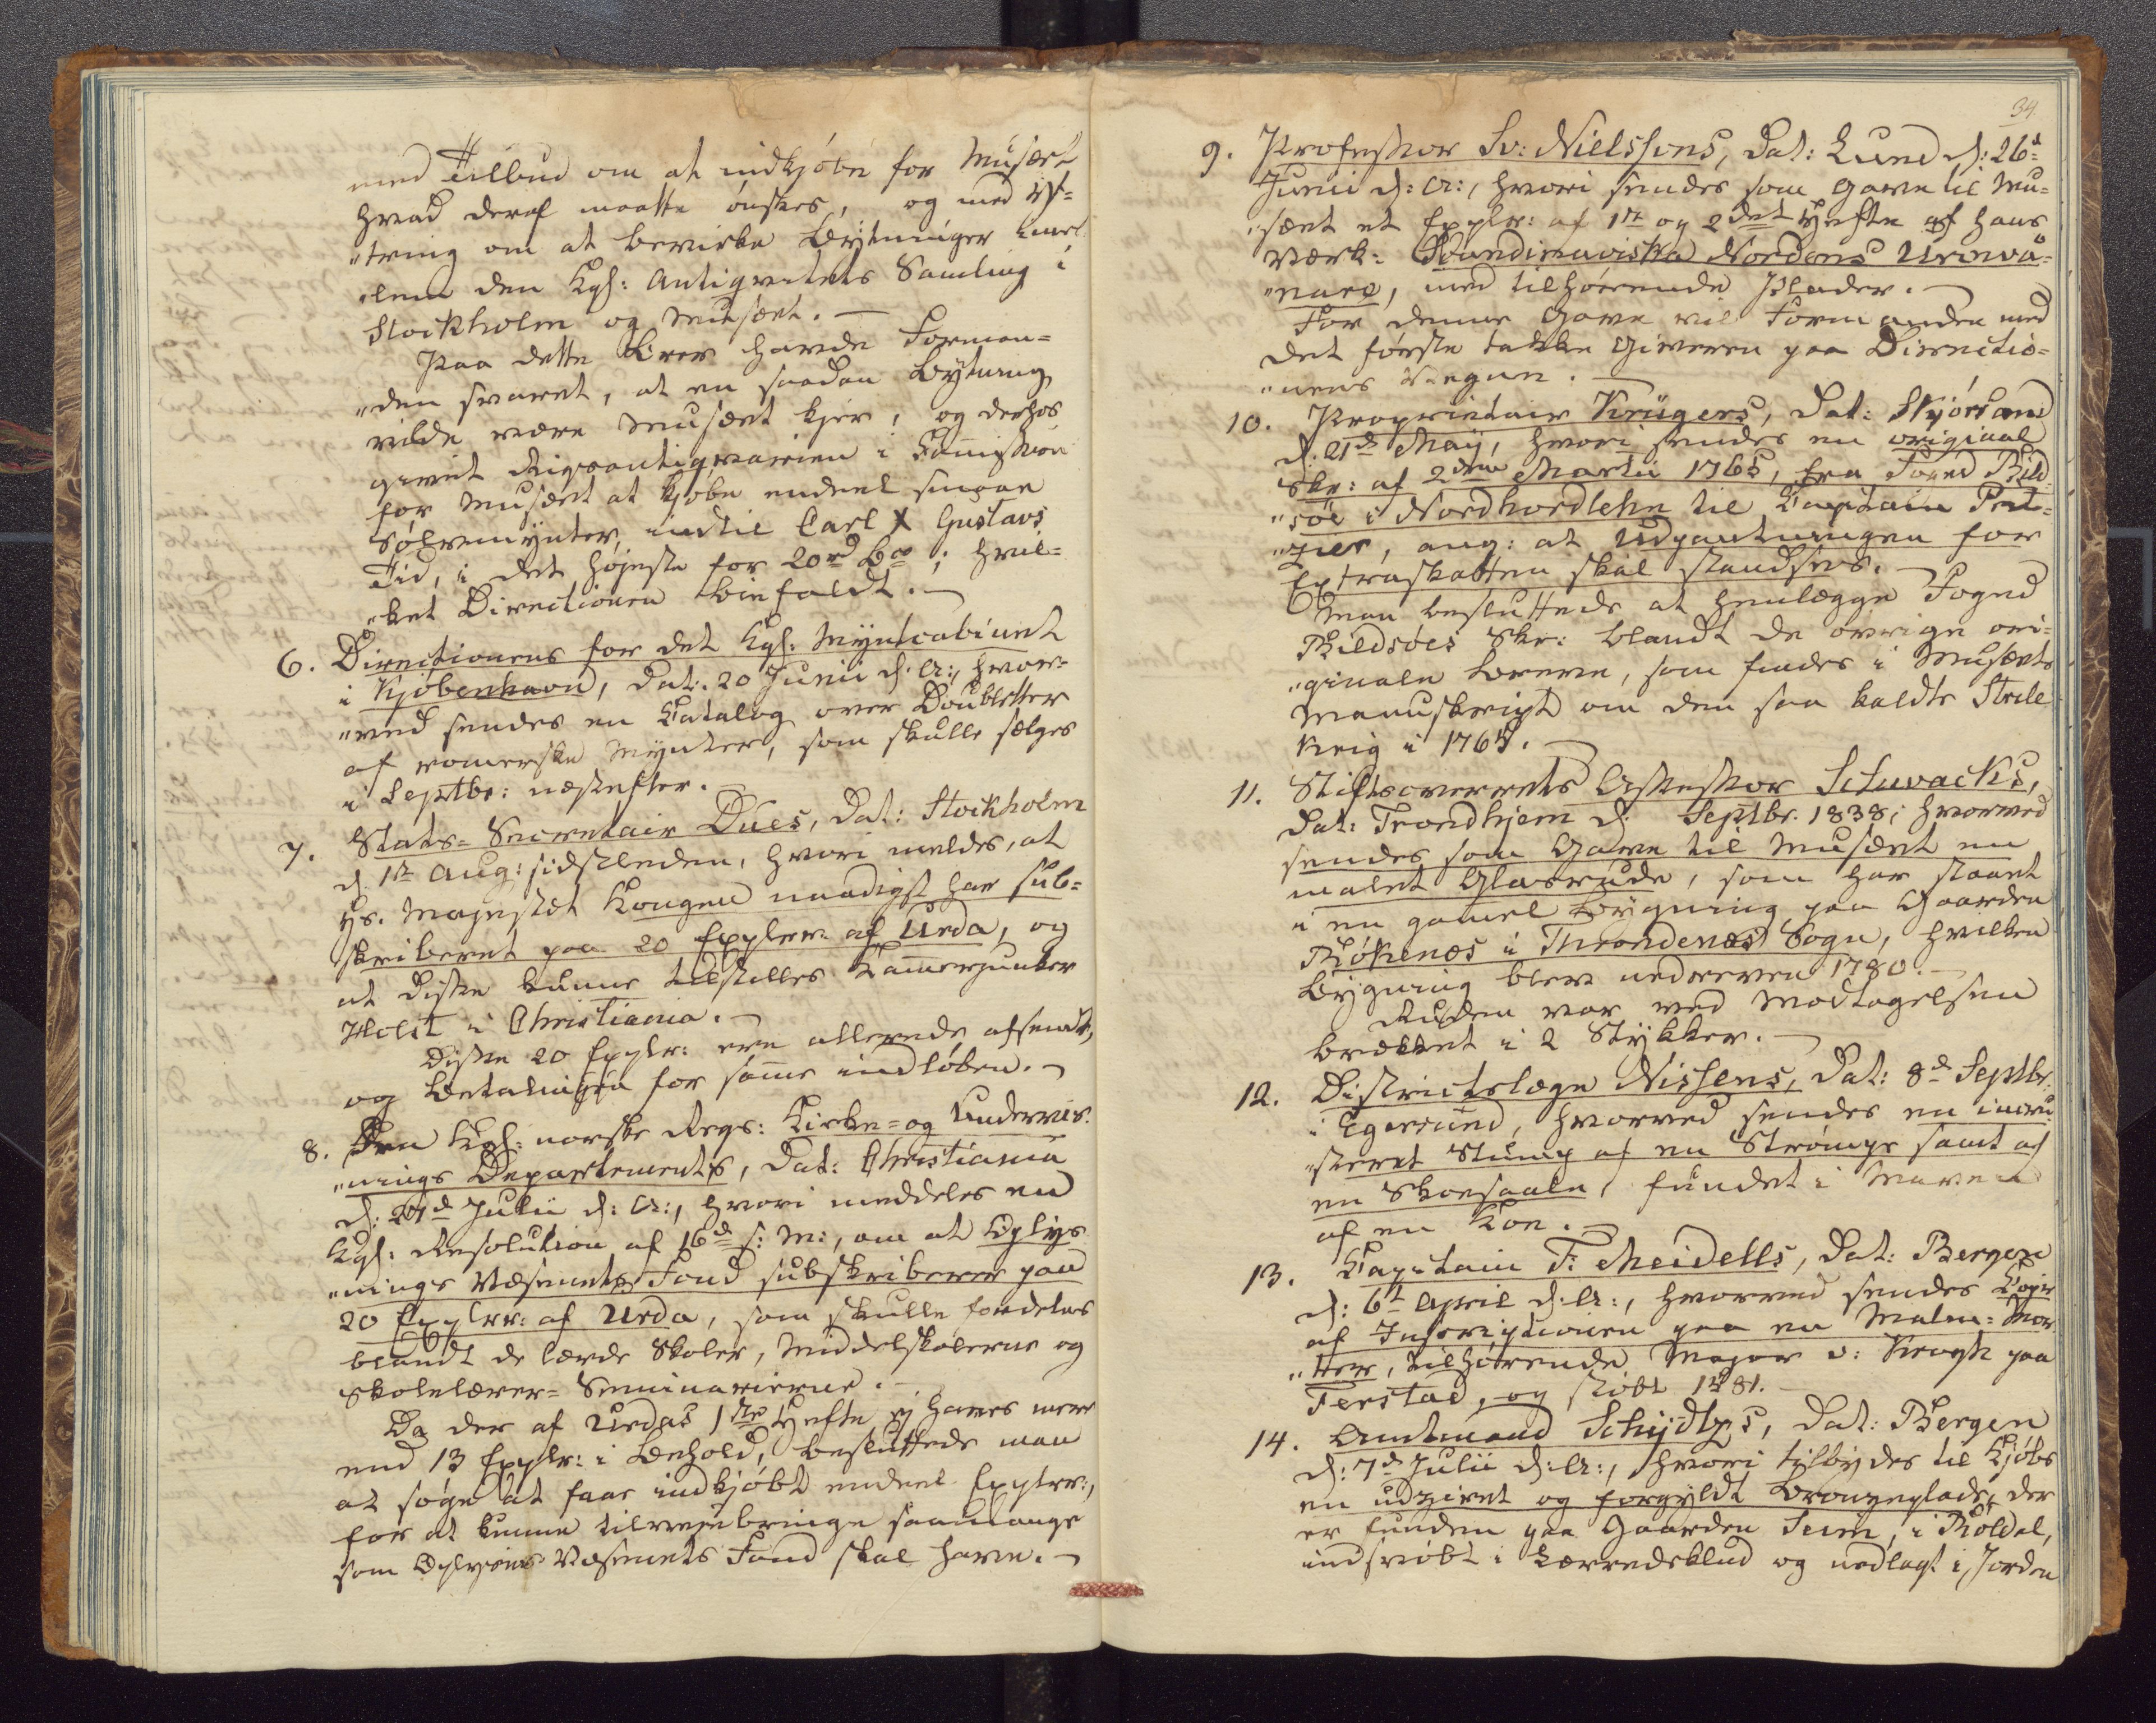 med Tilbud om at indkjøbe for Musæet
hvad deraf maatte ønskes, og med Yt=
„tring om at bevirke Bytninger imel=
„lem den Kgl: Antiqvitets Samling i
Stockholm og Musæet. —
Paa dette Brev havde Forman=
„den svaret, at en saadan Bytning
vilde være Musæet kjær, og derhos
givet Rigsantiqvarien i Commission
for Musæet at kjøbe endeel smaae
Sølvmynter, indtil Carl X Gustavs
Tid, i det høieste for 20 rd Bco; hvil=
„ket Directionen biefaldt. —
6. Directionens for det Kgl: Myntcabinet
i Kjøbenhavn, Dat: 20 Junii d: A:, hvor=
„ved sendes en Catalog over Doubletter
af romerske Mynter, som skulle sælges
i Septbr: næstefter.
7. Stats=Secretair Dües, Dat: Stockholm
d. 1ste Aug: sidstleden, hvori meldes, at
Hs. Majestæt Kongen naadigst har sub=
skriberet paa 20 Explrr: af Urda, og
at disse kunne tilstilles Kammerjunker
Holst i Christiania. —
Disse 20 Explr: ere allerede afsendte,
og Betalingen for samme indløben. —
8. Den Kgl: norske Regs: Kirke= og Underviis=
„nings Departements, Dat: Christiania
d: 27d Julii d: A:, hvori meddeles en
Kgl: Resolution af 16d s: M:, om at Oplys=
„nings Væsenets Fond subskriberer paa
20 Explrr: af Urda, som skulle fordeles
blandt de lærde Skoler, Middelskolerne og
Skolelærer=Seminarierne. —
Da der af Urdas 1ste Hefte ej haves mere
end 13 Explr: i Behold, besluttede man
at søge at faae indkjøbt endeel Explrr:,
for at kunne tilveiebringe saamange
som Oplysnings Væsenets Fond skal have. —
34.
9. Professor Sv: Nielssons, Dat: Lund d: 26d
Junii d: A:, hvori sendes som Gave til Mu=
„sæet et Explr: af 1ste og 2det Hefte af hans
Værk: Skandinaviska Nordens Urinvå=
„nare, med tilhørende Plader. —
For denne Gave vil Formanden med
det første takke Giveren paa Directio=
„nens Vegne. —
10. Proprietair Krügers, Dat: Skjörsand
d. 21de Maij, hvori sendes en original
Skr: af 2den Martii 1765, fra Foged Bild=
„söe i Nordhordlehn til Capitain
ang: at Udpantningen for
Extraskatten skal standses. —
Man besluttede at henlægge Foged
Bildsöes Skr: blandt de øvrige ori=
„ginale Breve, som findes i Musæets
Manuskript om den saa kaldte Strile
Krig i 1765. —
11. Stiftsoverrets Assessor Schwachs,
Dat: Trondhjem d. Septbr. 1838; hvorved
sendes som Gave til Musæet en
malet Glasrude, som har staaet
i en gamel Bygning paa Gaarden
Rökenæs i Throndenæs Sogn, hvilken
Bygning blev nedreven 1780. —
Ruden var ved Modtagelsen
brækket i 2 Stykker. —
12. Districtslæge Nissens, Dat: 8d Septbr:
i Egersund, hvorved sendes en incru=
„steret Stump af en Strømpe samt af
en Skoesaale, fundet i Maven
af en Koe. —
13. Capitain F: Meidells, Dat: Bergen
d: 6te April d: A:, hvorved sendes Copie
af Inscriptionen paa en Malm=Mor
„ter, tilhørende Major v: Krogh paa
Ferstad, og støbt 1481. —
14. Amtmand Schydtz's, Dat: Bergen
d: 7d Julii d: A:, hvori tilbydes til Kjøbs
en udziret og forgyldt Bronzeplade, der
er funden paa Gaarden Seim, i Röldal,
indsvøbt i Lærredsklud og nedlagt i Jorden